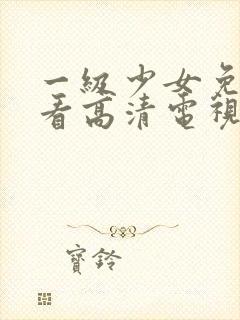 一級少女免
看高清電視
寶鈴